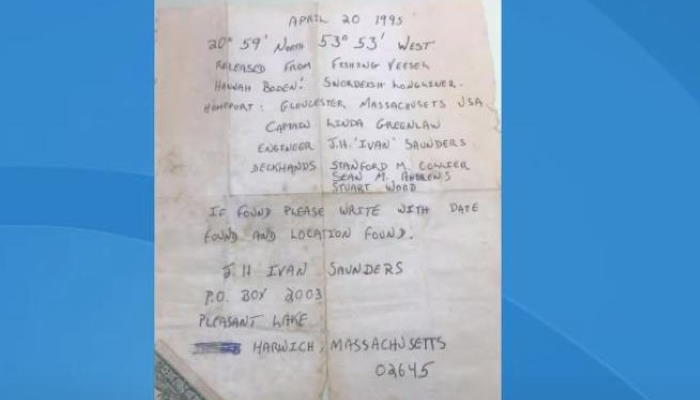 APRIL 20 1995
20° 59' NORTH 53° 53' WEST
RELEASED FROM FISHING VESSEL
HANNAH BODEN: SWORDFISH LONGLINER.
HOMEPORT: GLOUCESTER MASSACHUSETS USA
CAPTAIN LINDA GREENLAW
ENGINEER J.H. 'IVAN' SAUNDERS
DECKHANDS STANFORD M. COLLIER
SEAN M. ANDREWS
STUART WOOD
IF FOUND PLEASE WRITE WITH DATE
FOUND AND LOCATION FOUND.
J.H IVAN SAUNDERS
P.O. BOX 2003
PLEASANT LAKE
HARWICH, MASSACHUSETTS
02645